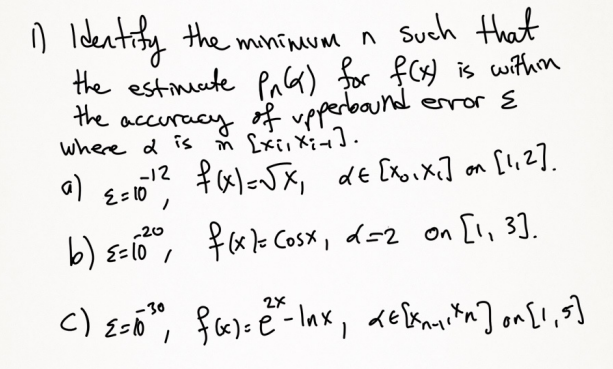 1) Identify the minimum n such that
the estimate Pn(α) for f(x) is within
the accuracy of upperbound error ε
where α is in [xi, xi-1].
a) ε=10^-12, f(x)=√x, α∈[x0,x1] on [1,2].
b) ε=10^-20, f(x)=cosx, α=2 on [1, 3].
c) ε=10^-30, f(x)=e^2x-lnx, α∈[xn-1,xn] on [1,5]